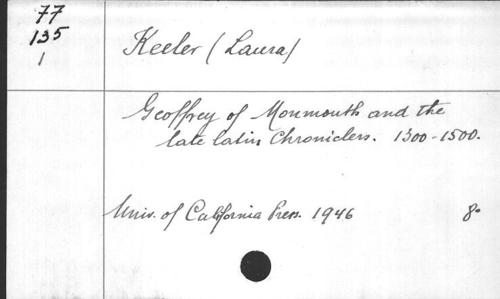 77
135
1
Keeler (Laura)
Geoffrey of Monmouth and the
late latin Chroniclers. 1300-1500.
Univ. of California Press. 1946 8º